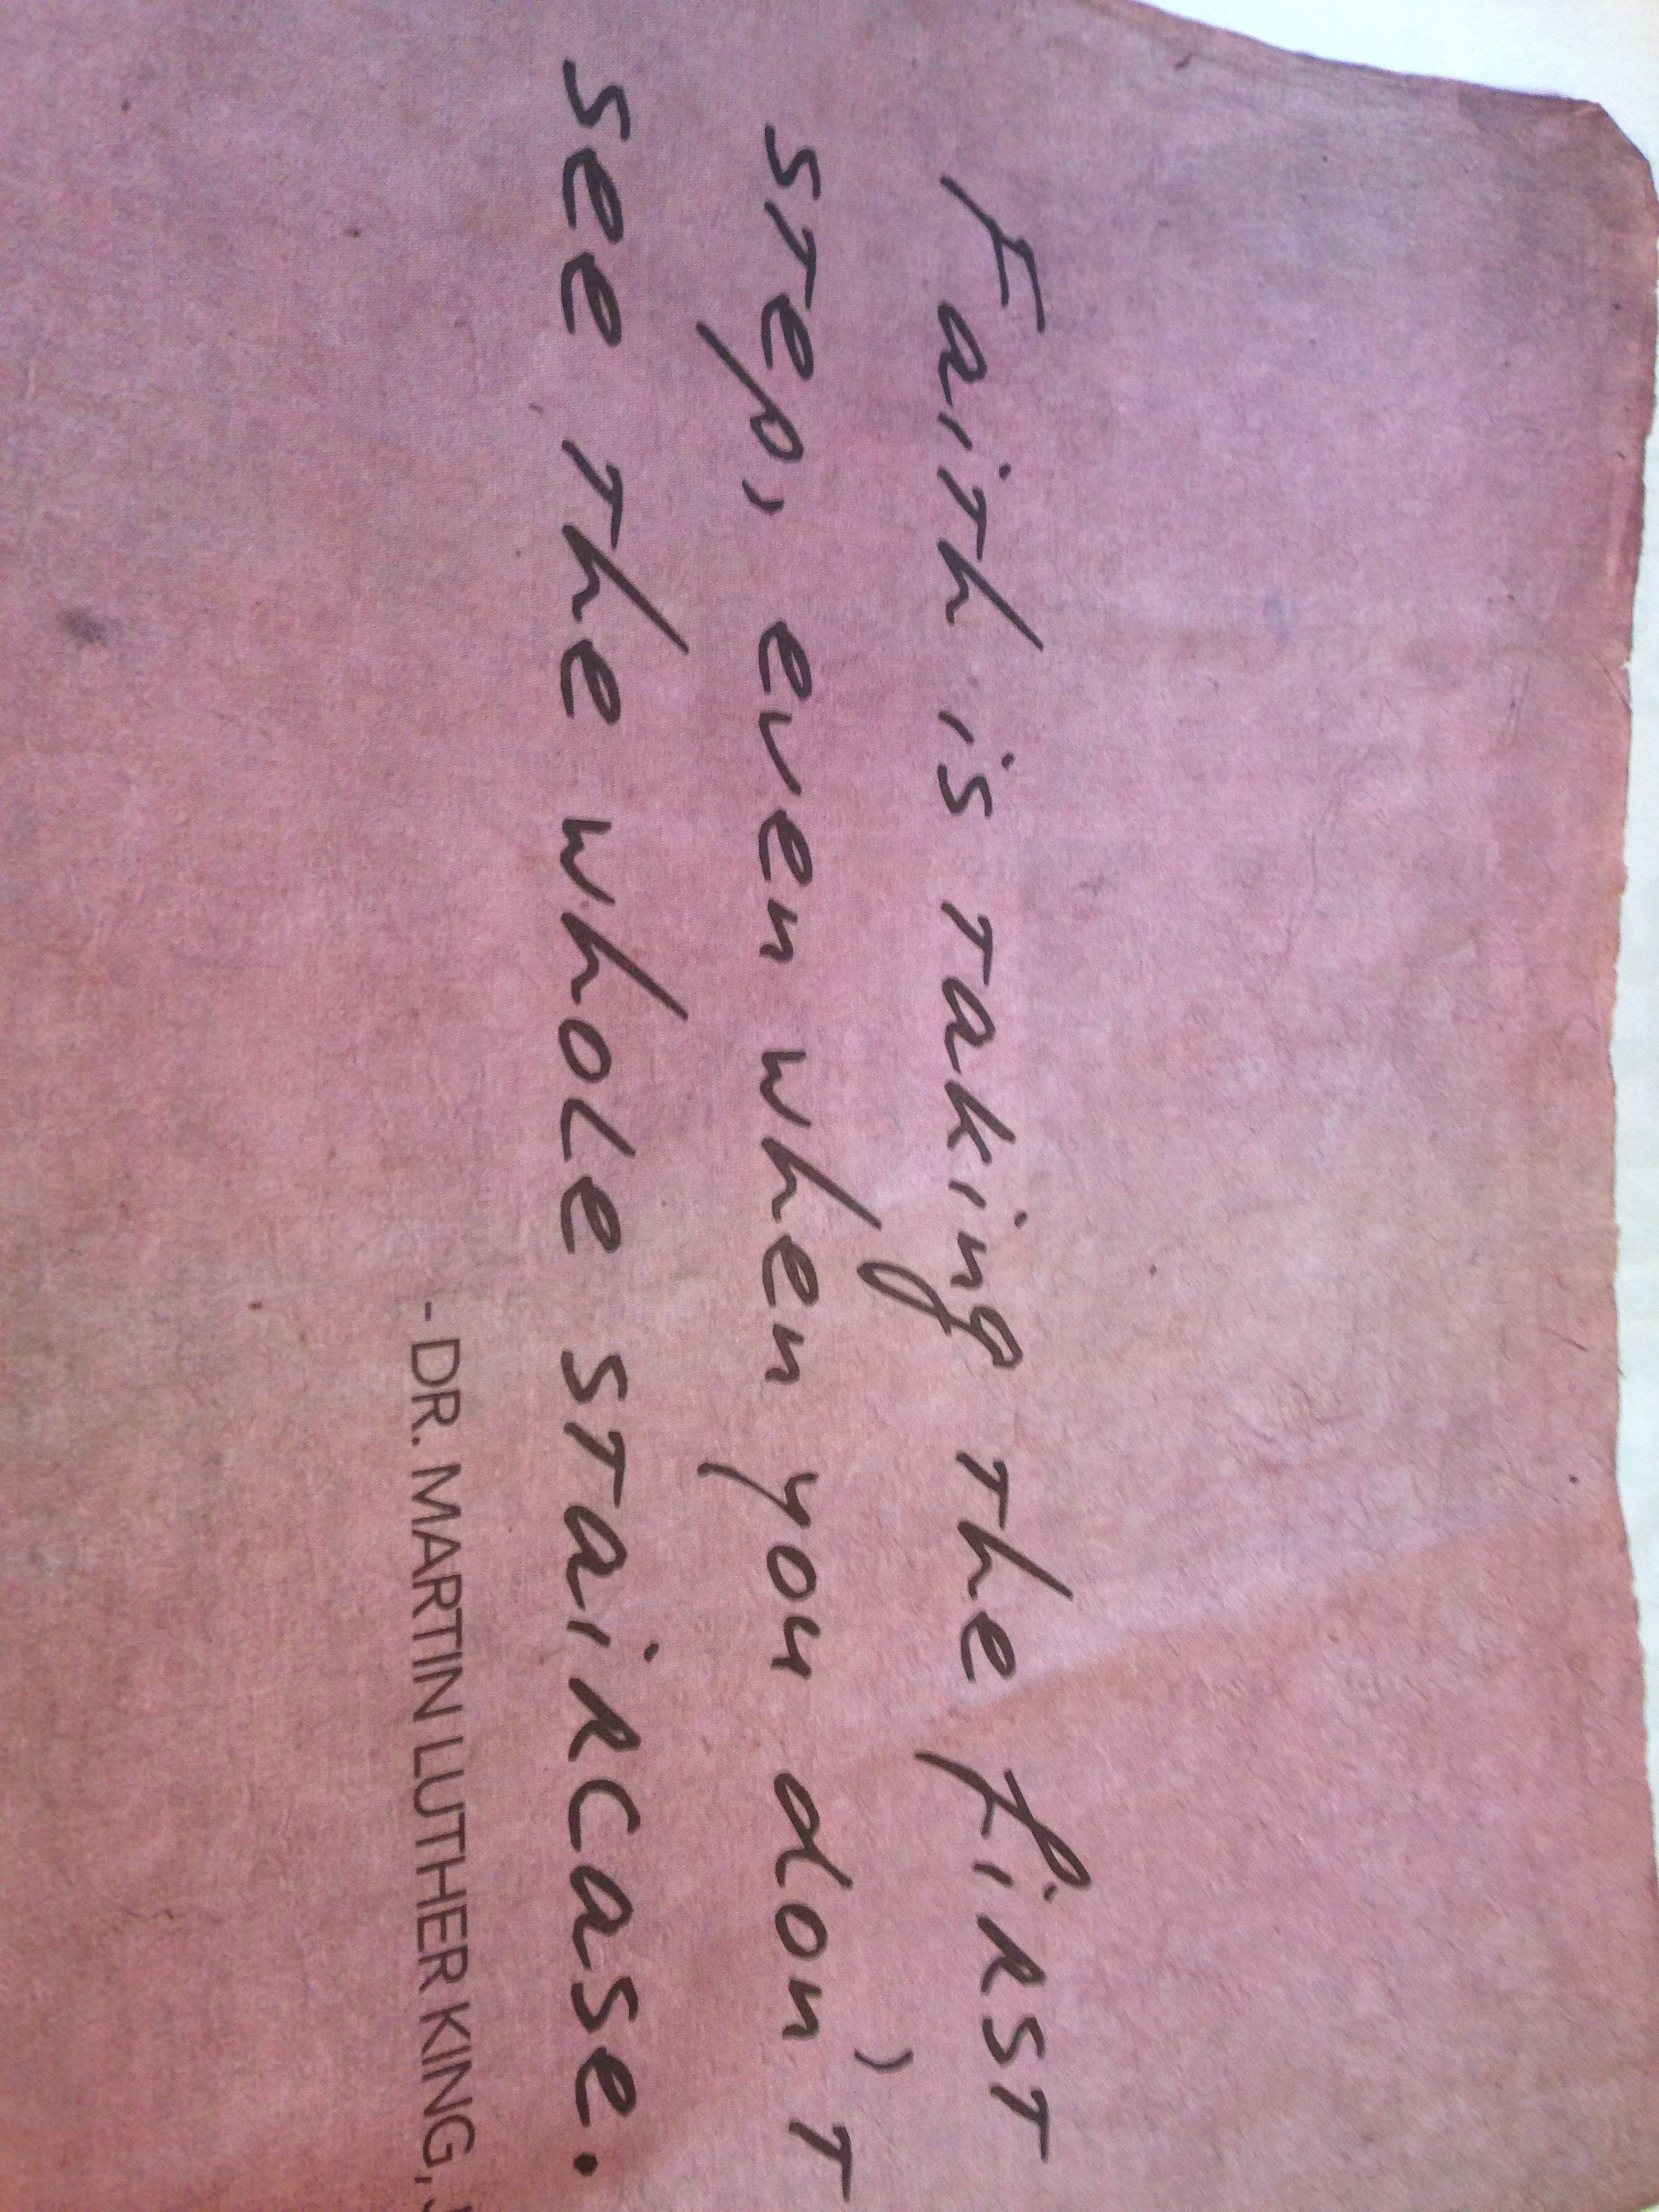 Faith is taking the first
step, even when you don't
see the whole staircase.
- DR. MARTIN LUTHER KING, J